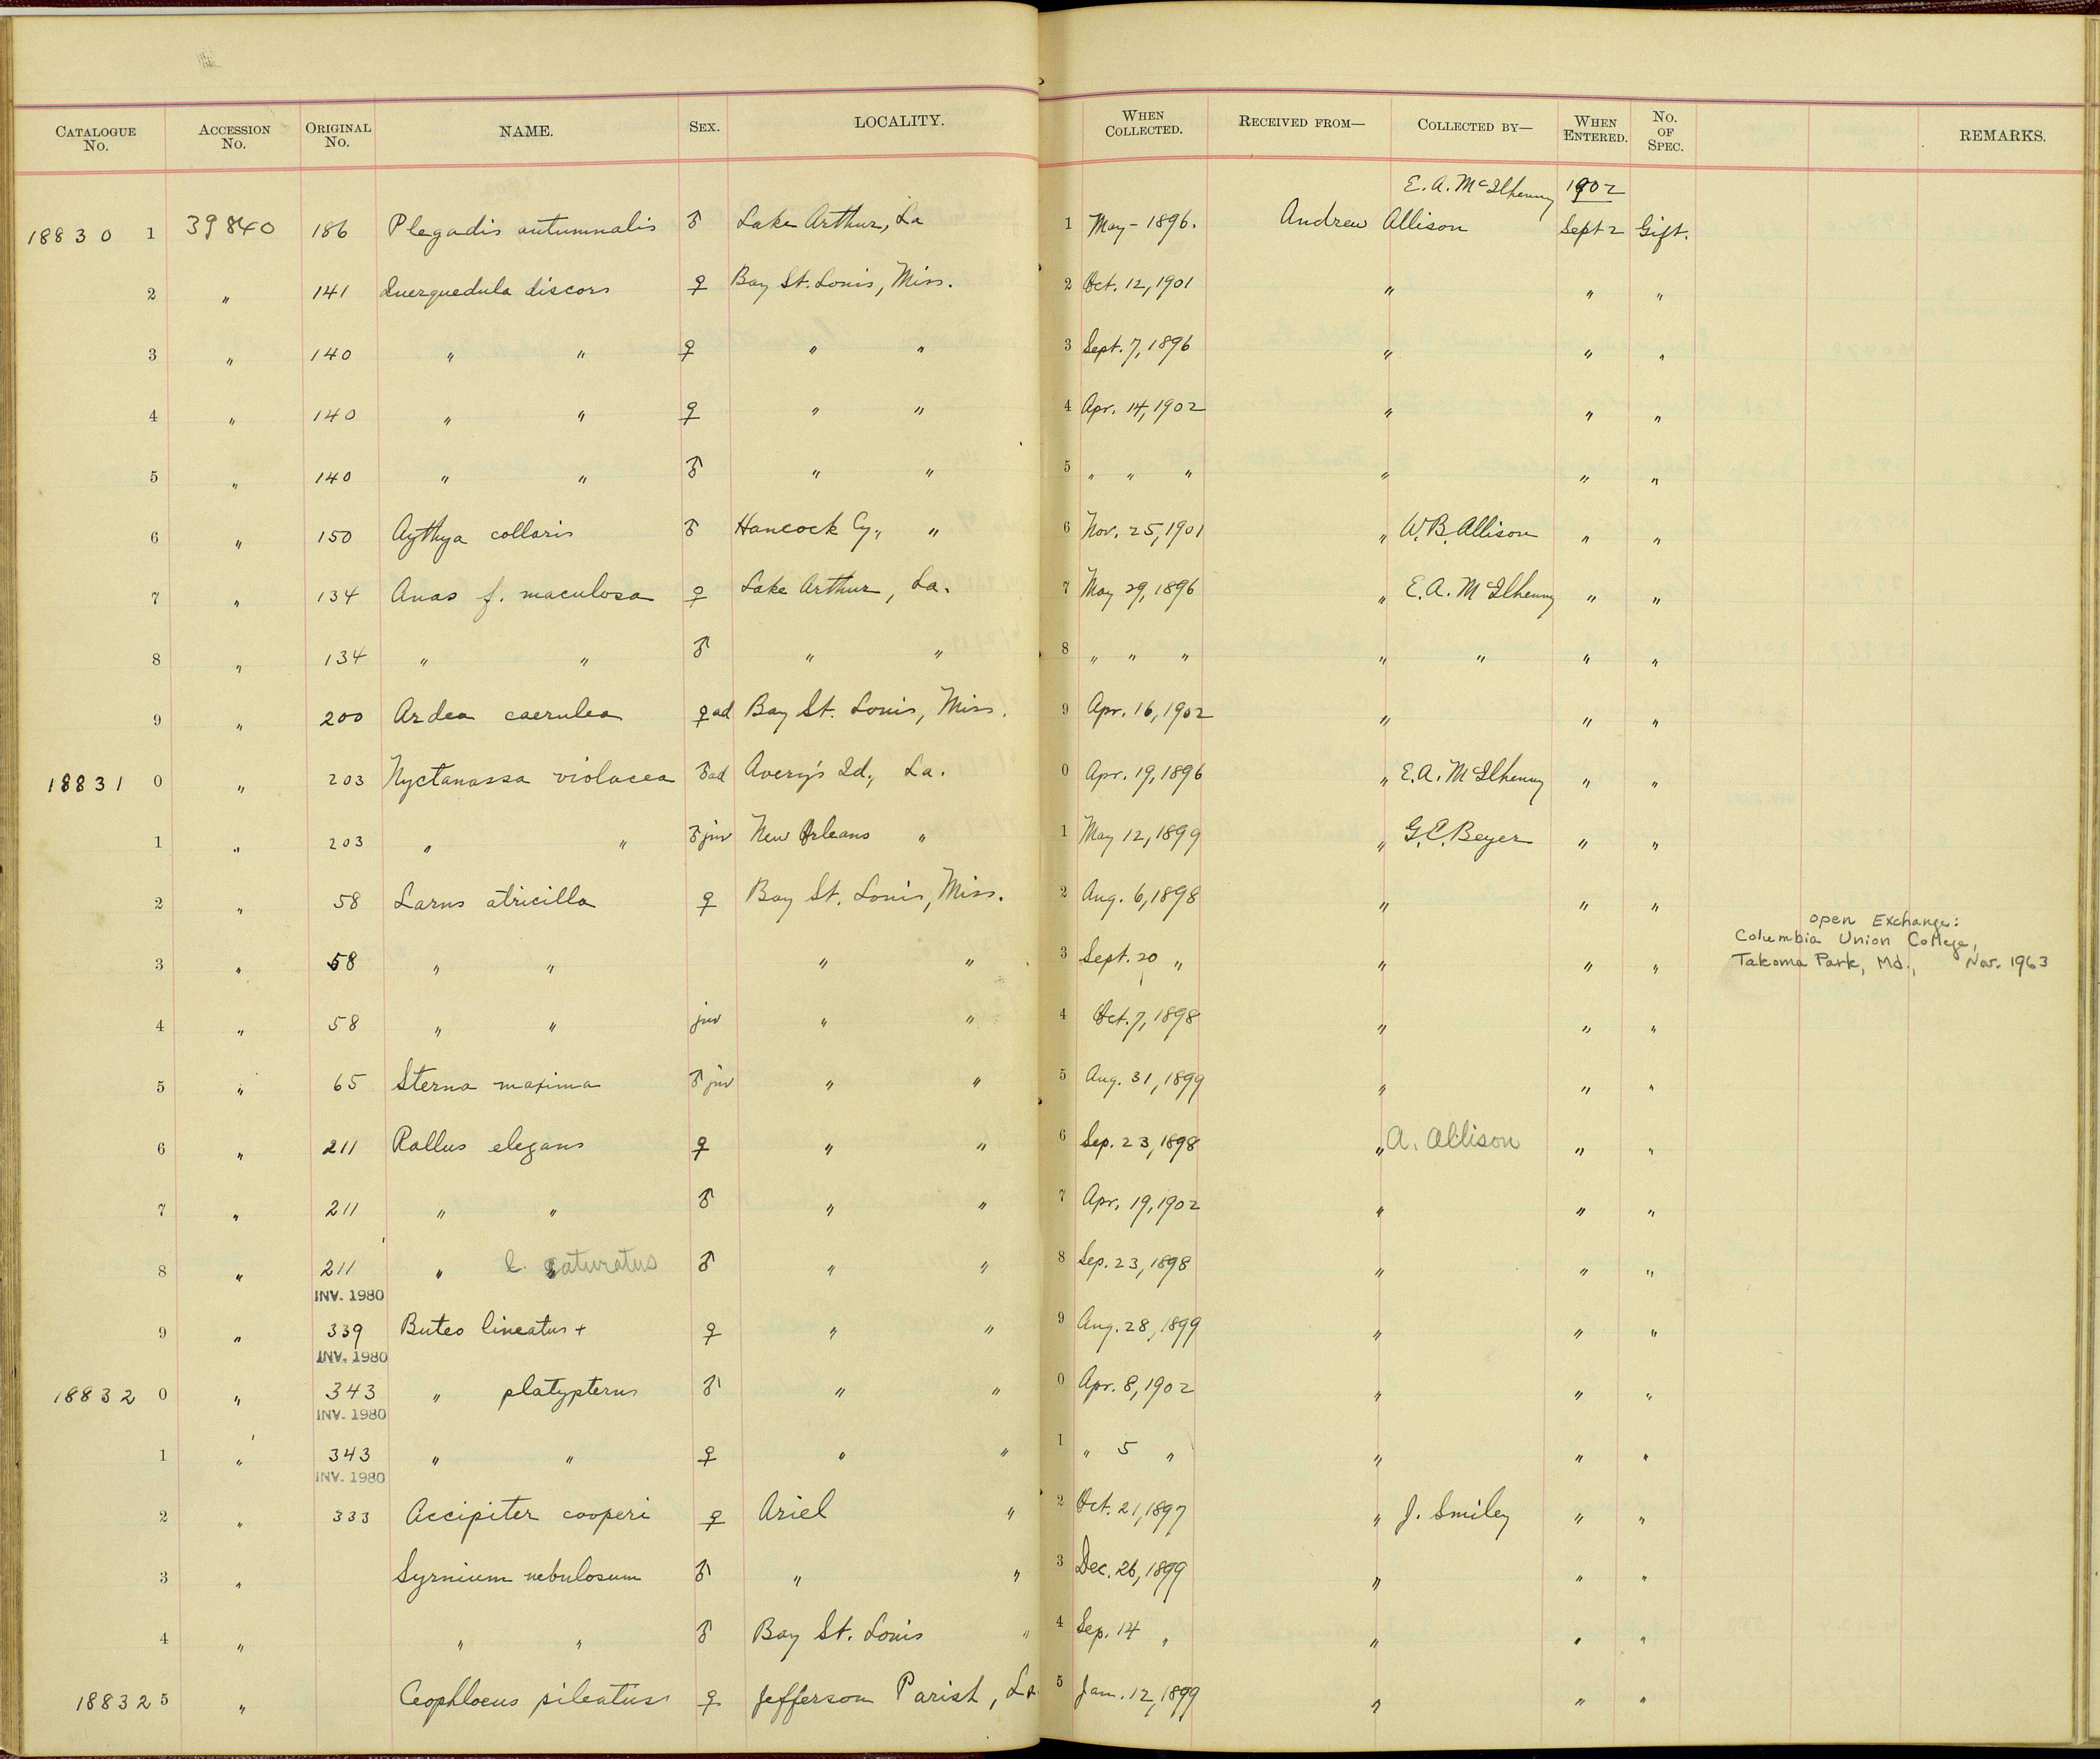 CATALOGUE No. ACCESSION No. ORIGINAL No. NAME. SEX. LOCALITY. WHEN COLLECTED. RECEIVED FROM— COLLECTED BY— WHEN ENTERED. No. OF SPEC. REMARKS.
E. A. McIlhenny 1902
18830 1 39840 186 Plegadis autumnalis ♂ Lake Arthur, La 1 May - 1896. Andrew Allison Sept 2 Gift.
2 " 141 Querquedula discors ♀ Bay St. Louis, Miss. 2 Oct. 12, 1901 " " "
3 " 140 " " ♀ " " 3 Sept. 7, 1896 " " "
4 " 140 " " ♀ " " 4 Apr. 14, 1902 " " "
5 " 140 " " ♂ " " 5 " " " " " "
6 " 150 Aythya collaris ♂ Hancock Cy., " 6 Nov. 25, 1901 " W. B. Allison " "
7 " 134 Anas f. maculosa ♀ Lake Arthur, La. 7 May 29, 1896 " E. A. McIlhenny " "
8 " 134 " " ♂ " " 8 " " " " " " "
9 " 200 Ardea caerulea ♀ ad Bay St. Louis, Miss. 9 Apr. 16, 1902 " " "
18831 0 " 203 Nyctanassa violacea ♂ ad Avery's Id., La. 0 Apr. 19, 1896 " E. A. McIlhenny " "
1 " 203 " " ♂ juv New Orleans " 1 May 12, 1899 " G. E. Beyer " "
2 " 58 Larus atricilla ♀ Bay St. Louis, Miss. 2 Aug. 6, 1898 " " "
open Exchange:
Columbia Union College,
3 " 58 " " " " 3 Sept. 20 " " " " Takoma Park, Md., Nov. 1963
4 " 58 " " juv " " 4 Oct. 7, 1898 " " "
5 " 65 Sterna maxima ♂ juv " " 5 Aug. 31, 1899 " " "
6 " 211 Rallus elegans ♀ " " 6 Sep. 23, 1898 " A. Allison " "
7 " 211 " " ♂ " " 7 Apr. 19, 1902 " " "
8 " 211 " l. saturatus ♂ " " 8 Sep. 23, 1898 " " "
INV. 1980
9 " 339 Buteo lineatus + ♀ " " 9 Aug. 28, 1899 " " "
INV. 1980
18832 0 " 343 " platypterus ♂ " " 0 Apr. 8, 1902 " " "
INV. 1980
1 " 343 " " ♀ " " 1 " 5 " " " "
INV. 1980
2 " 333 Accipiter cooperi ♀ Ariel " 2 Oct. 21, 1897 " J. Smiley " "
3 " Syrnium nebulosum ♂ " " 3 Dec. 26, 1899 " " "
4 " " " ♂ Bay St. Louis " 4 Sep. 14 " " " "
18832 5 " Ceophloeus pileatus ♀ Jefferson Parish, La 5 Jan. 12, 1899 " " "